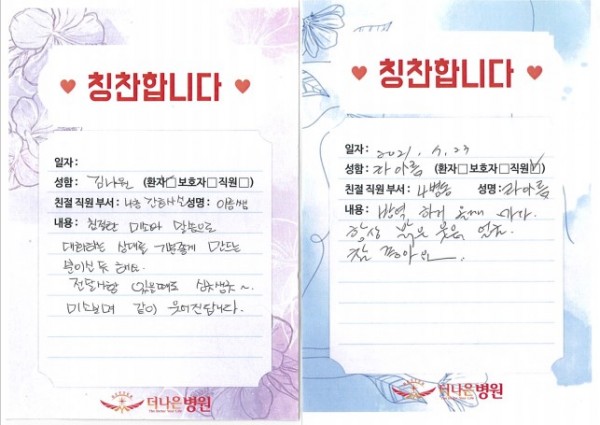 칭찬합니다
일자 :
성함 : 김나원 (환자□ 보호자□ 직원□)
친절 직원 부서 : 4층 간호사 성명 : 이
내용 : 친절한 미소와 말씀으로
상대를 기분좋게 만드는
분이신 듯 해요.
전달사항 있을때도
미소보며 같이 웃어진답니다.
더나은병원
칭찬합니다
일자 : 2021. 4. 23
성함 : 라아름 (환자□ 보호자□ 직원☑)
친절 직원 부서 : 4병동 성명 : 라아름
내용 : 방역 하러 올때 마다
항상 밝은 웃음
참 좋아요.
더나은병원